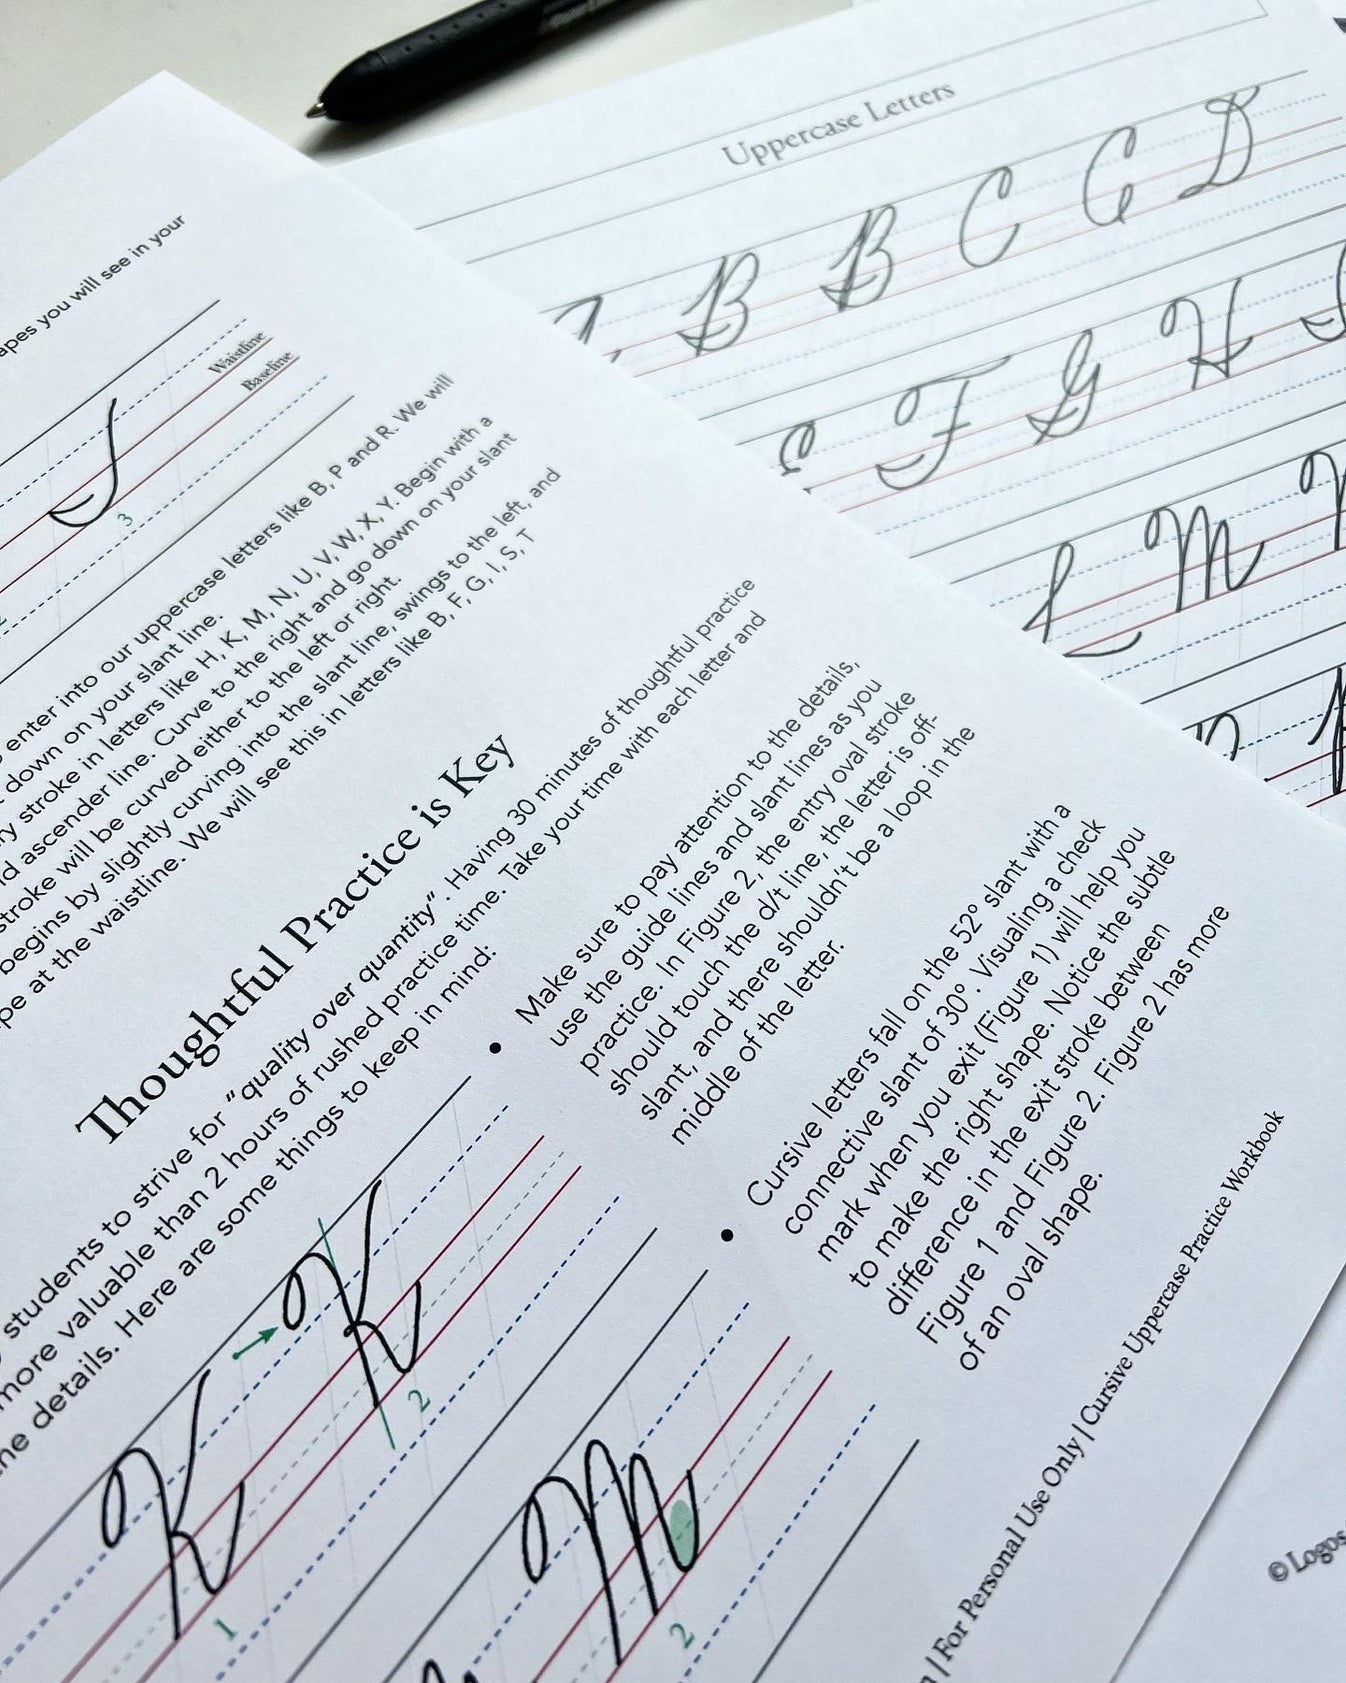 apes you will see in your
Waistline
Baseline
3
2
enter into our uppercase letters like B, P and R. We will
down on your slant line.
ry stroke in letters like H, K, M, N, U, V, W, X, Y. Begin with a
ascender line. Curve to the right and go down on your slant
stroke will be curved either to the left or right.
begins by slightly curving into the slant line, swings to the left, and
pe at the waistline. We will see this in letters like B, F, G, I, S, T
Thoughtful Practice is Key
students to strive for "quality over quantity". Having 30 minutes of thoughtful practice
more valuable than 2 hours of rushed practice time. Take your time with each letter and
he details. Here are some things to keep in mind:
• Make sure to pay attention to the details,
use the guide lines and slant lines as you
practice. In Figure 2, the entry oval stroke
should touch the d/t line, the letter is off-
slant, and there shouldn't be a loop in the
middle of the letter.
• Cursive letters fall on the 52° slant with a
connective slant of 30°. Visualing a check
mark when you exit (Figure 1) will help you
to make the right shape. Notice the subtle
difference in the exit stroke between
Figure 1 and Figure 2. Figure 2 has more
of an oval shape.
K K
1 2
M
2
n | For Personal Use Only | Cursive Uppercase Practice Workbook
Uppercase Letters
B B C C D
E F G H
L M
© Logos